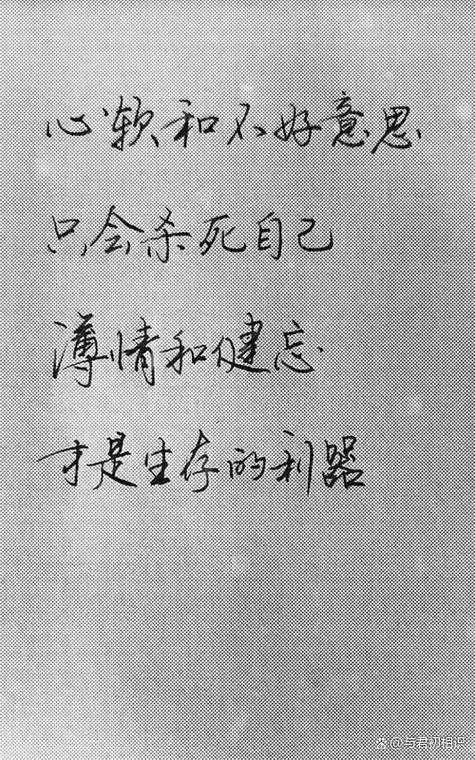 心软和不好意思
只会杀死自己
薄情和健忘
才是生存的利器
@与君初相识